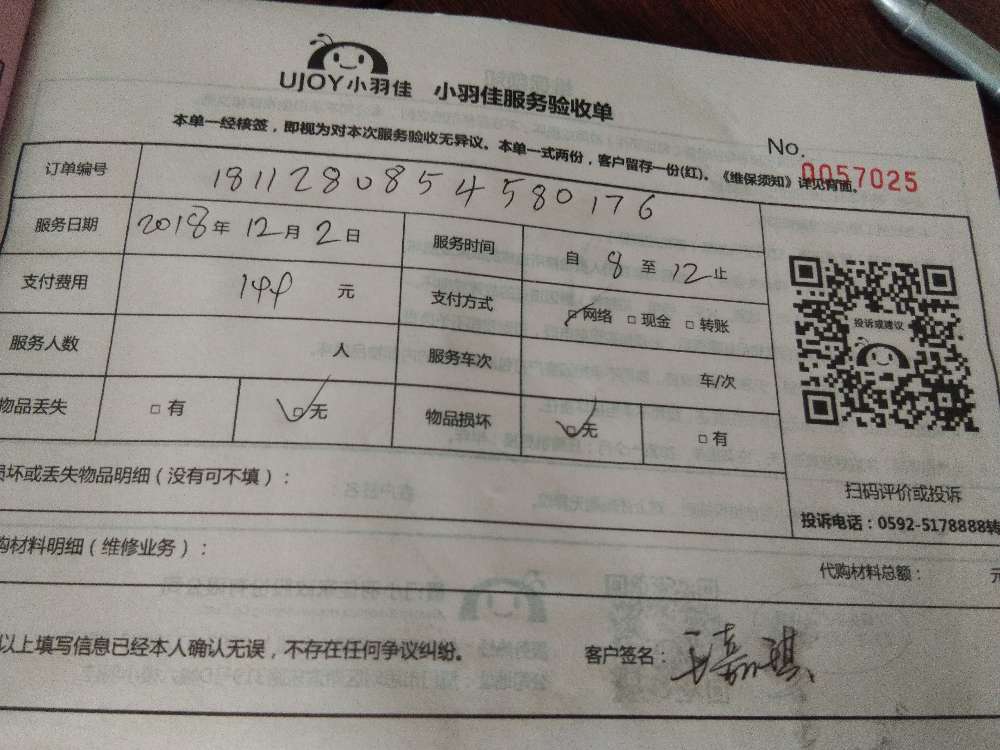 UJOY小羽佳 小羽佳服务验收单
本单一经核签，即视为对本次服务验收无异议。本单一式两份，客户留存一份(红)。《维保须知》详见背面。
No. 0057025
订单编号 181128085458 0176
服务日期 2018年12月2日 服务时间 自8至12止
支付费用 144元 支付方式 □网络 □现金 □转账
服务人数 人 服务车次 车/次
物品丢失 □有 □无 物品损坏 □无 □有
投诉或建议
扫码评价或投诉
投诉电话：0592-5178888转
损坏或丢失物品明细（没有可不填）：
购材料明细（维修业务）：
代购材料总额： 元
以上填写信息已经本人确认无误，不存在任何争议纠纷。 客户签名：王嘉琪